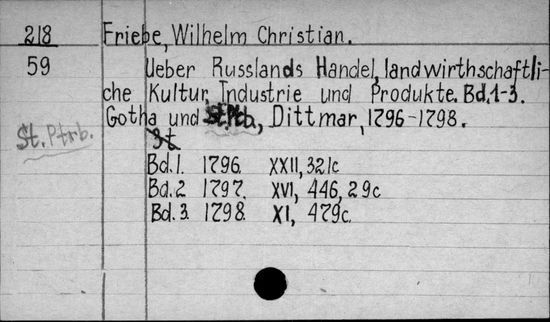 218 Friebe, Wilhelm Christian.
59 Ueber Russlands Handel, landwirthschaftli-
che Kultur, Industrie und Produkte. Bd. 1-3.
Gotha und St.Ptb., Dittmar, 1796-1798.
St. Ptrb.
3t
Bd. 1. 1796. XXII, 321c
Bd. 2 1797. XVI, 446, 29c
Bd. 3. 1798. XI, 479c.